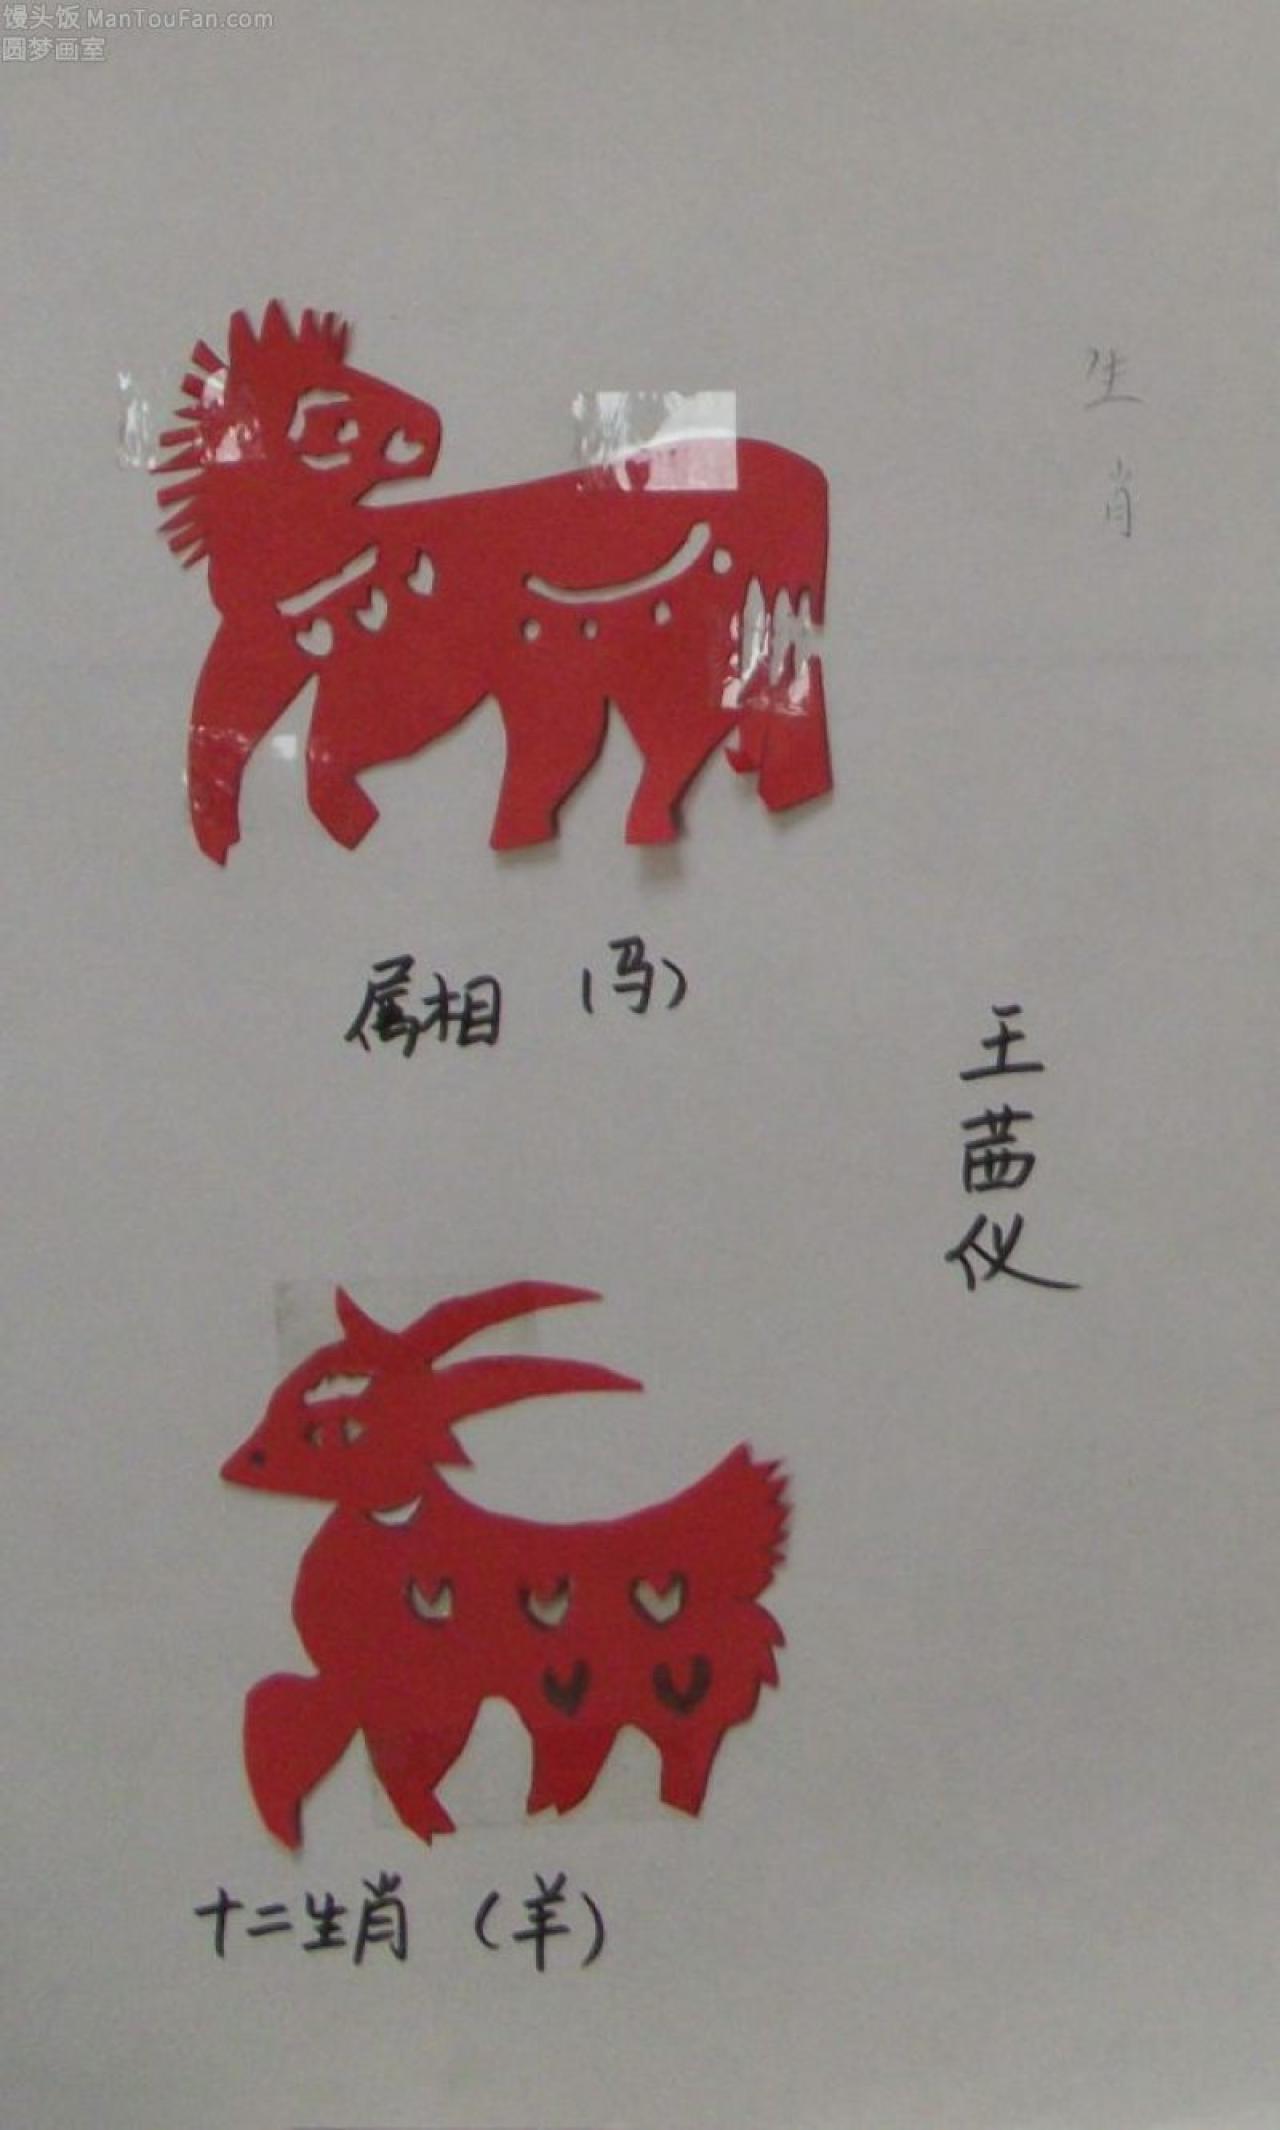 馒头饭 ManTouFan.com
圆梦画室
生肖
属相 (马)
王茜仪
十二生肖 (羊)